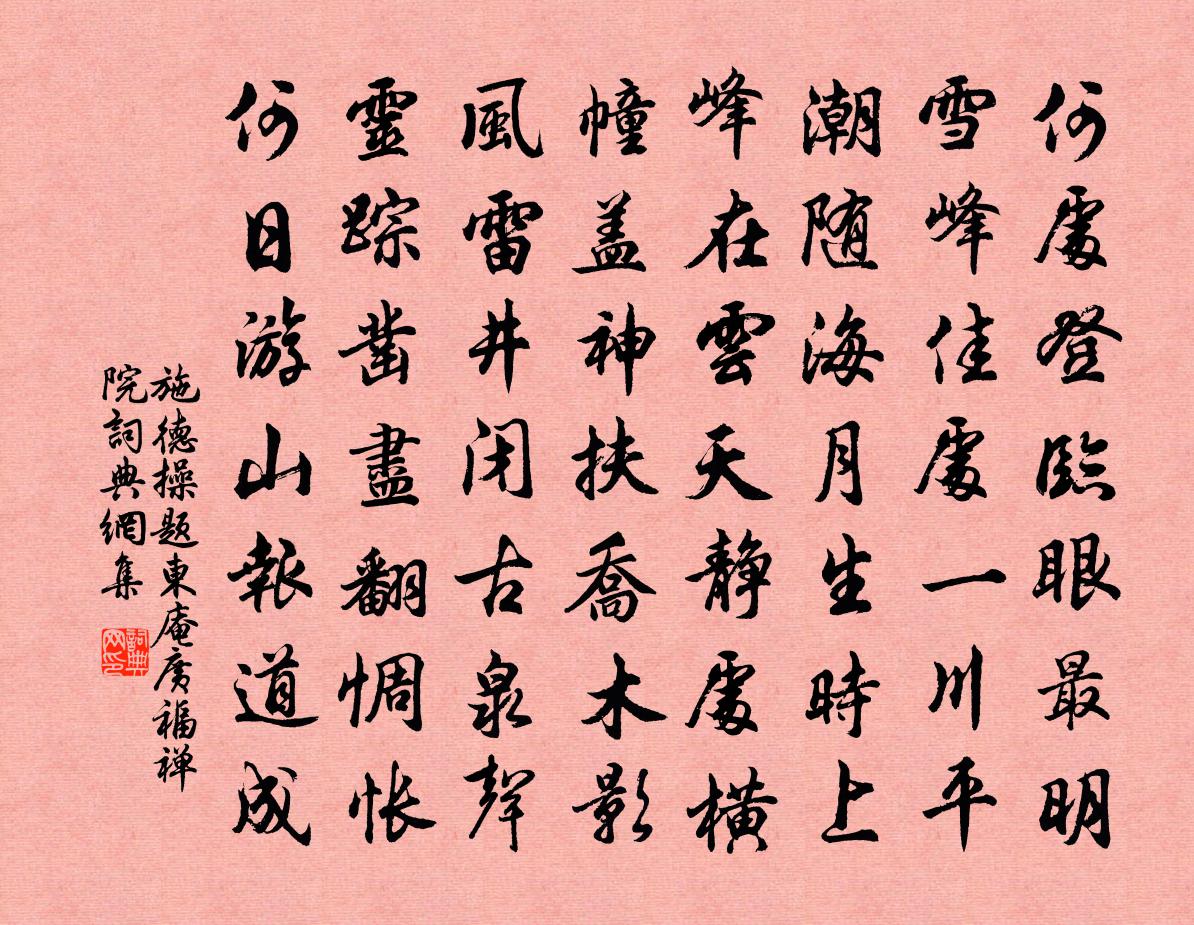 何處登臨眼最明
雪峰佳處一川平
潮随海月生時上
峰在雲天静處橫
幢盖神扶喬木影
風雷井闭古泉聲
靈踪凿盡翻惆怅
何日游山報道成
施德操题東庵廣福禅
院詞典網集
詞典网印